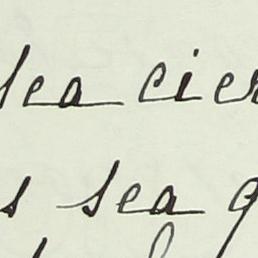 sea cier
s sea q